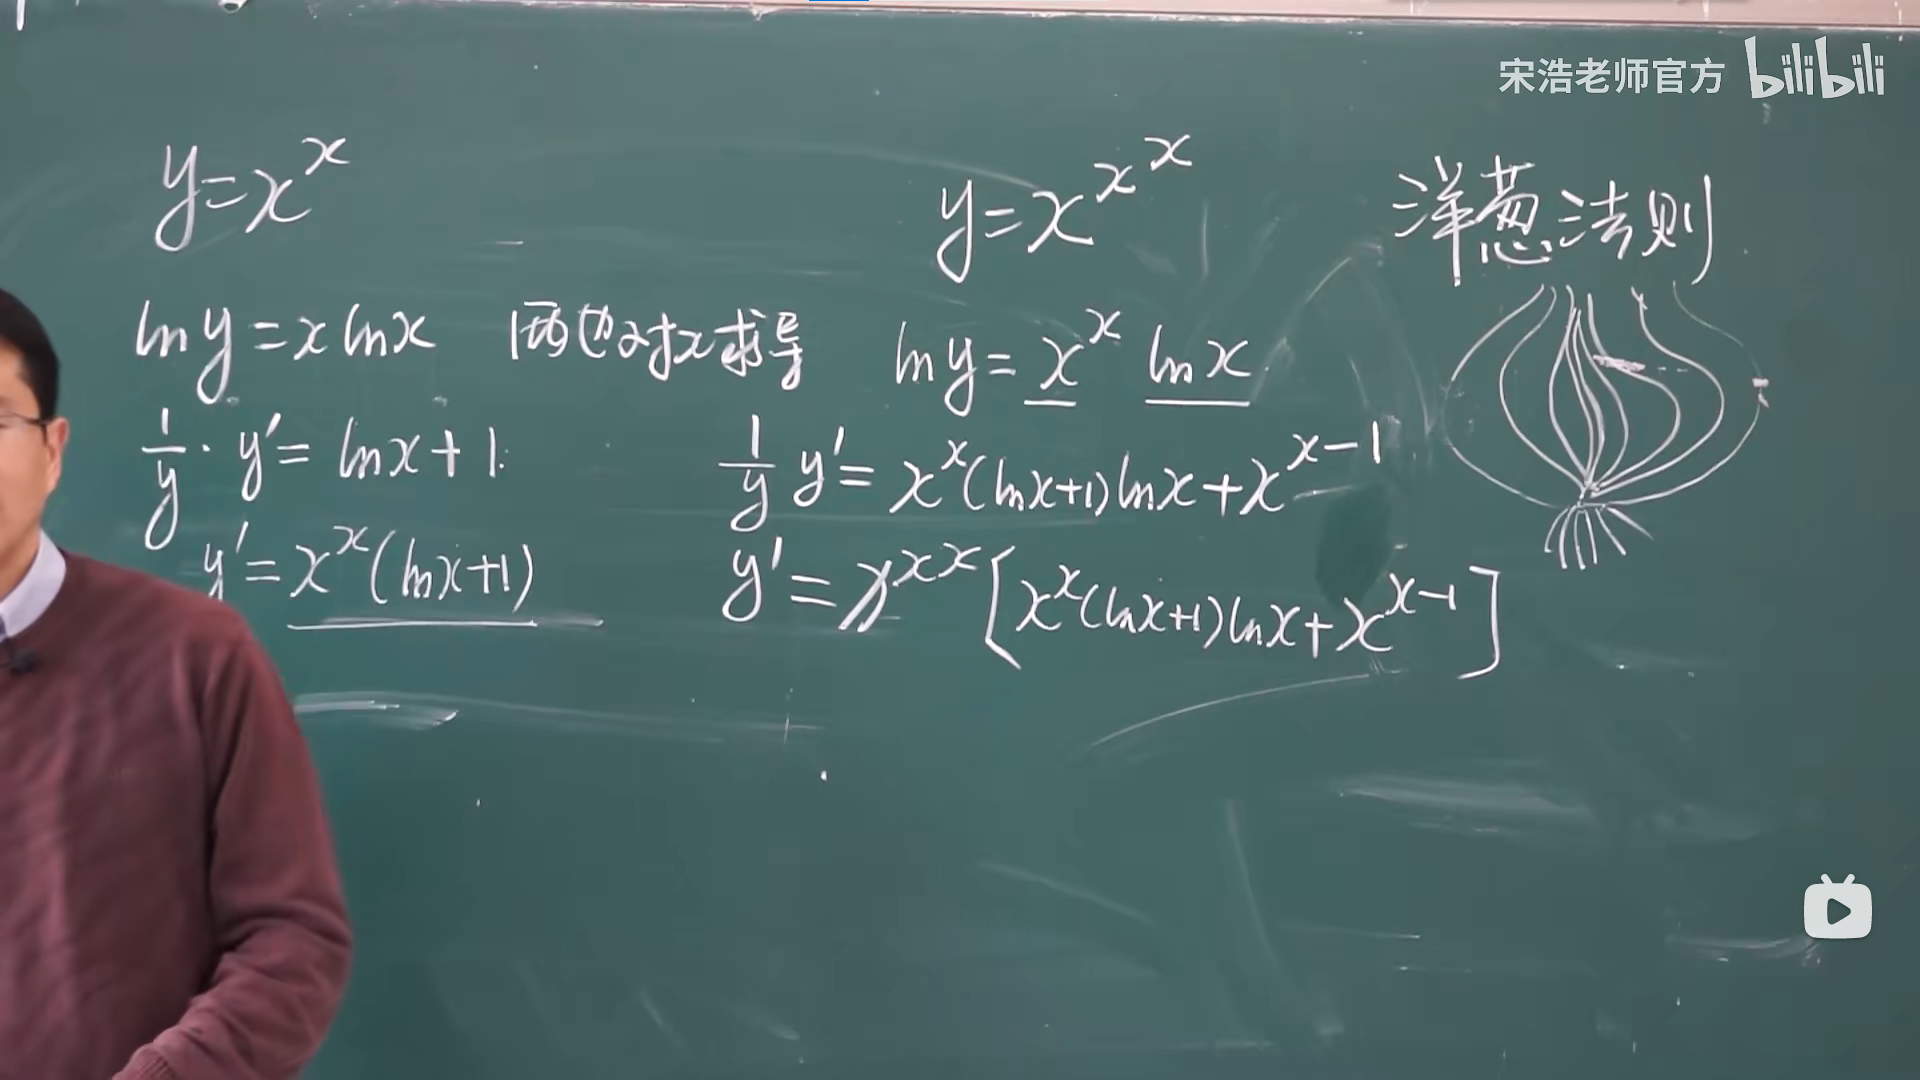 宋浩老师官方 bilibili
y=x^x
ln y = x ln x 两边对x求导
1/y · y' = ln x + 1
y' = x^x (ln x+1)
y = x^x^x
ln y = x^x ln x
1/y y' = x^x (ln x+1) ln x + x^x-1
y' = x^x^x [x^x (ln x+1) ln x + x^x-1]
洋葱法则